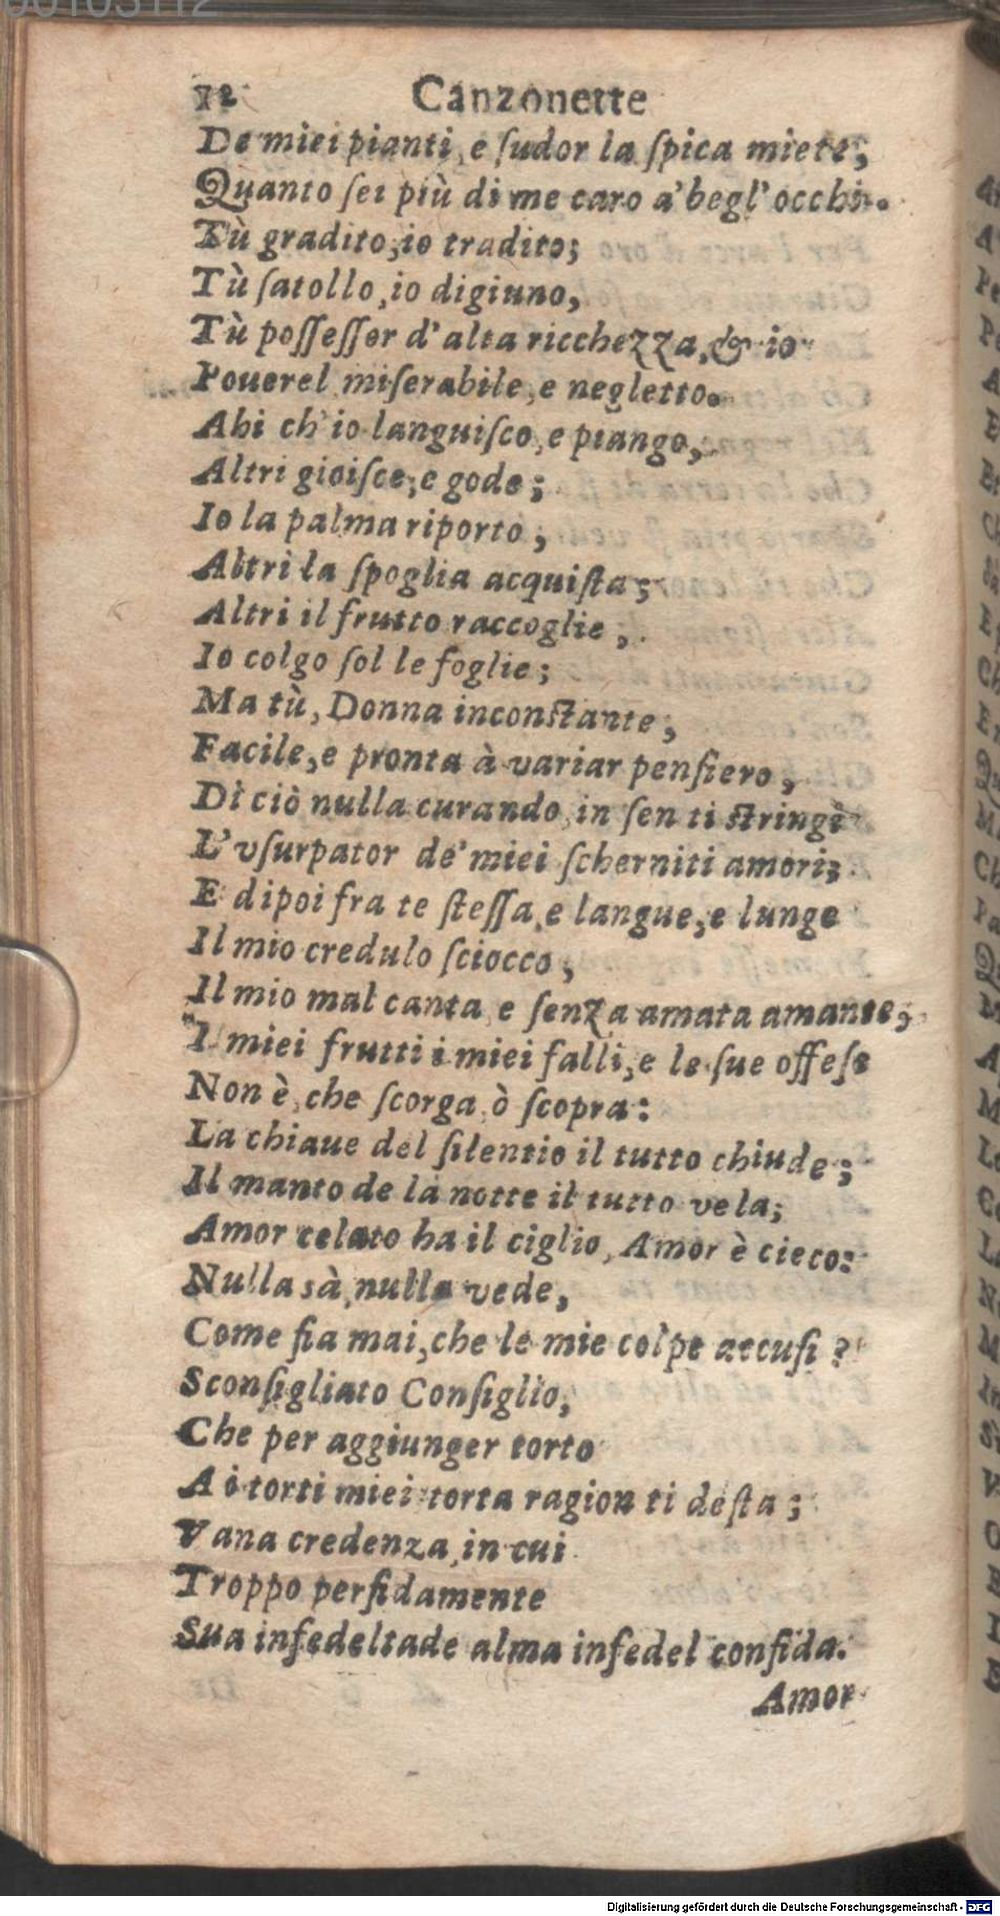 00103112
72 Canzonette
De miei pianti, e ſudor la ſpica miete;
Quanto ſei più di me caro a' begl' occhi.
Tù gradito, io tradito;
Tù ſatollo, io digiuno,
Tù poſſeſſor d'alta ricchezza, & io
Pouerel miſerabile, e negletto.
Ahi ch'io languiſco, e piango,
Altri gioiſce, e gode;
Io la palma riporto,
Altri la ſpoglia acquiſta;
Altri il frutto raccoglie,
Io colgo ſol le foglie;
Ma tù, Donna inconſtante,
Facile, e pronta à variar penſiero,
Di ciò nulla curando, in ſen ti ſtringi
L'vſurpator de' miei ſcherniti amori;
E dipoi fra te ſteſſa, e langue, e lunge
Il mio credulo ſciocco,
Il mio mal canta, e ſenza amata amante,
I miei frutti i miei falli, e le ſue offeſe
Non è, che ſcorga, ò ſcopra:
La chiaue del ſilentio il tutto chiude;
Il manto de la notte il tutto vela;
Amor celato ha il ciglio, Amor è cieco:
Nulla sà, nulla vede,
Come fia mai, che le mie colpe accuſi?
Sconſigliato Conſiglio,
Che per aggiunger torto
A i torti miei torta ragion ti deſta;
Vana credenza, in cui
Troppo perfidamente
Sua infedeltade alma infedel confida.
Amor
Digitalisierung gefördert durch die Deutsche Forschungsgemeinschaft - DFG